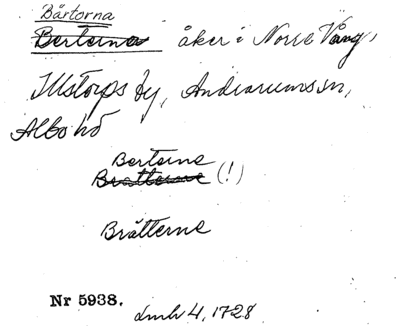 Bärtorna
Bertorna åker i Norre Vång,
Illstorps by, Andrarums sn,
Albo hd
Bertorne
Brätterne (!)
Brätterne
Nr 5938.
lmh 4, 1728